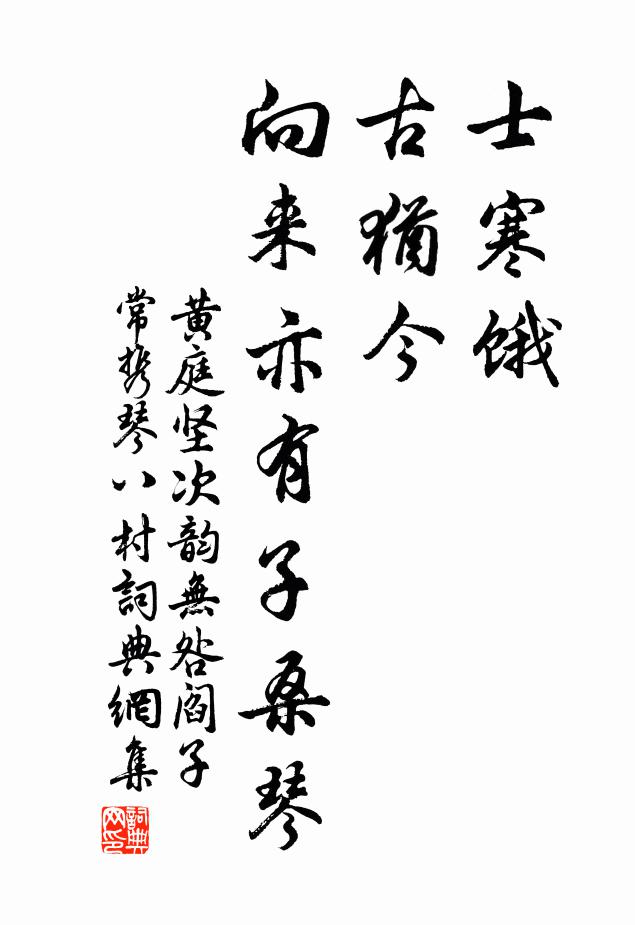 士寒饿
古犹今
向来亦有子桑琴
黄庭坚次韵無咎阎子
常携琴八村詞典網集
詞典
网印